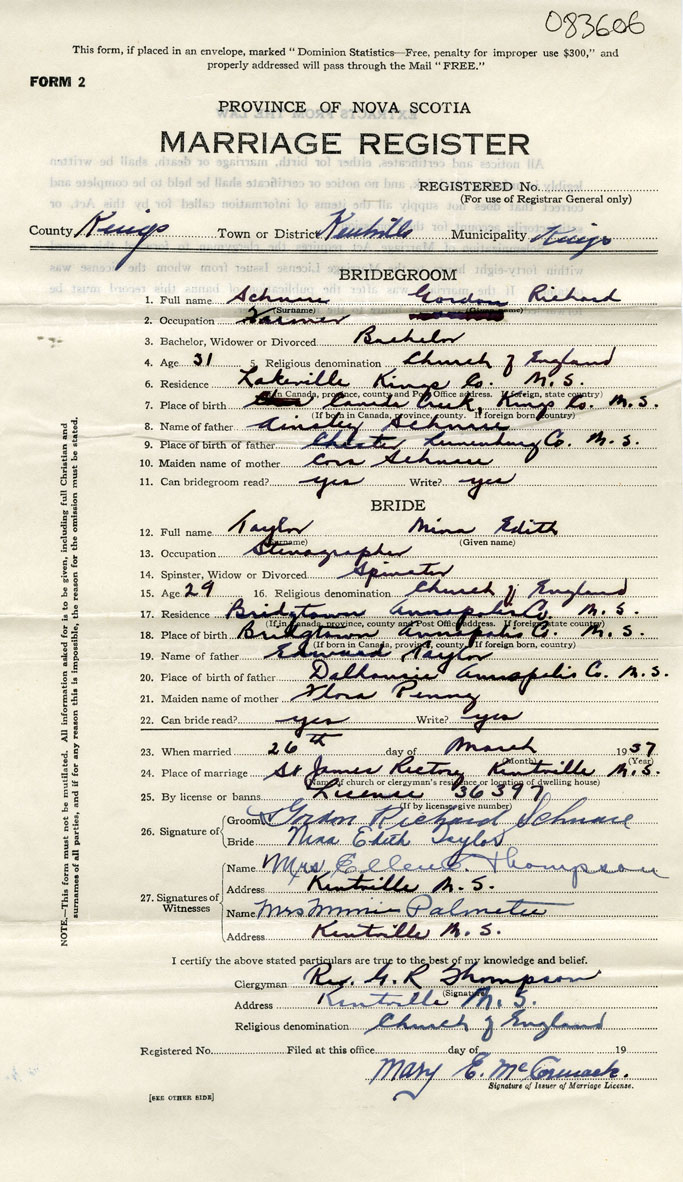 083606
This form, if placed in an envelope, marked "Dominion Statistics—Free, penalty for improper use $300," and
properly addressed will pass through the Mail "FREE."
FORM 2
PROVINCE OF NOVA SCOTIA
MARRIAGE REGISTER
REGISTERED No.
(For use of Registrar General only)
County Kings Town or District Kentville Municipality Kings
BRIDEGROOM
1. Full name Schnare Gordon Richard
(Surname) (Given name)
2. Occupation Farmer
3. Bachelor, Widower or Divorced Bachelor
4. Age 31 5. Religious denomination Church of England
6. Residence Lakeville Kings Co. N.S.
(If in Canada, province, county and Post Office address. If foreign, state country)
7. Place of birth Creek, Kings Co. N.S.
(If born in Canada, province, county. If foreign born country)
8. Name of father Ainsley Schnare
9. Place of birth of father Chester Lunenburg Co. N.S.
10. Maiden name of mother Cora Schnare
11. Can bridegroom read? yes Write? yes
BRIDE
12. Full name Taylor Nina Edith
(Surname) (Given name)
13. Occupation Stenographer
14. Spinster, Widow or Divorced Spinster
15. Age 29 16. Religious denomination Church of England
17. Residence Bridgtown Annapolis Co. N.S.
(If in Canada, province, county and Post Office address. If foreign state country)
18. Place of birth Bridgtown Annapolis Co. N.S.
(If born in Canada, province, county. If foreign born, country)
19. Name of father Edward Taylor
20. Place of birth of father Dalhousie Annapolis Co. N.S.
21. Maiden name of mother Flora Penney
22. Can bride read? yes Write? yes
23. When married 26th day of March 1937
(Month) (Year)
24. Place of marriage St James Rectory Kentville N.S.
(Name of church or clergyman's residence or location of dwelling house)
25. By license or banns License 36377
(If by license, give number)
26. Signature of Groom Gordon Richard Schnare
Bride Nina Edith Taylor
27. Signatures of Witnesses
Name Mrs Ellen G. Thompson
Address Kentville N.S.
Name Mrs Minnie Palmeter
Address Kentville N.S.
I certify the above stated particulars are true to the best of my knowledge and belief.
Clergyman Rev. G. R Thompson
(Signature)
Address Kentville N.S.
Religious denomination Church of England
Registered No. Filed at this office day of 19
Mary E. McCormack.
Signature of Issuer of Marriage License.
[SEE OTHER SIDE]
NOTE.—This form must not be mutilated. All information asked for is to be given, including full Christian and
surnames of all parties, and if for any reason this is impossible, the reason for the omission must be stated.